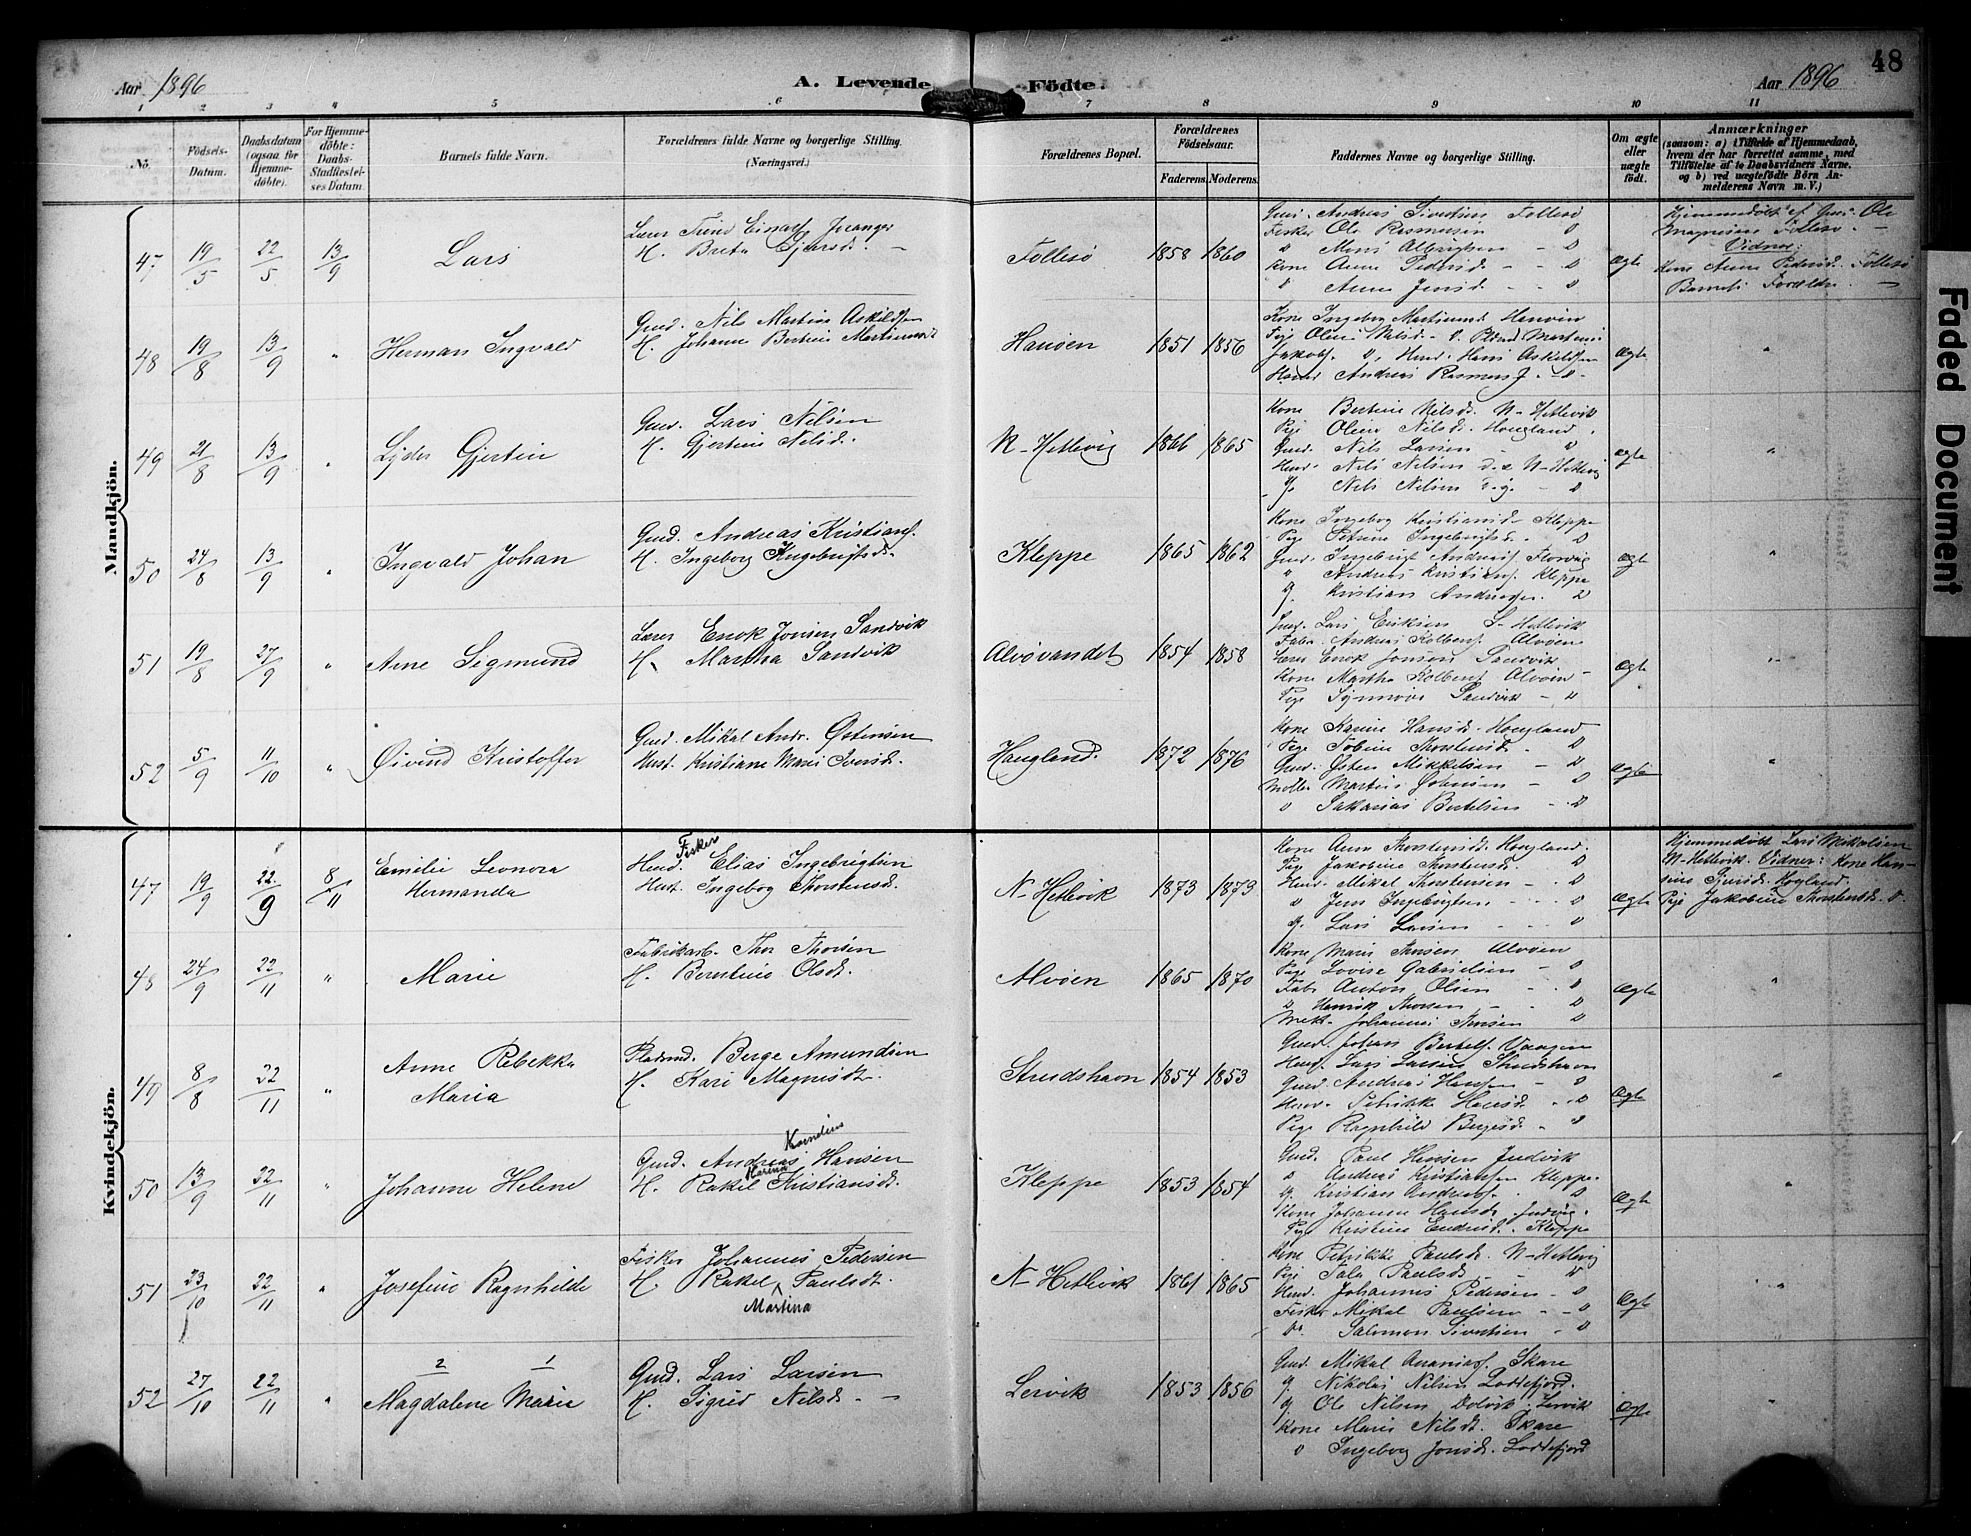 48
Aar 1896
A. Levende Födte.
Aar 1896
1 2 3 4 5 6 7 8 9 10 11
No.
Födsels-
Datum.
Daabsdatum
(ogsaa for
Hjemme-
döbte).
For Hjemme-
döbte:
Daabs-
Stadfæstel-
ses Datum.
Barnets fulde Navn.
Forældrenes fulde Navne og borgerlige Stilling.
(Næringsvei.)
Forældrenes Bopæl.
Forældrenes
Födselsaar.
Faderens. Moderens.
Faddernes Navne og borgerlige Stilling.
Om ægte
eller
uægte
födt.
Anmærkninger
(saasom: a) i Tilfælde af Hjemmedaab,
hvem der har forrettet samme, med
Tilföielse af to Daabsvidners Navne,
og b) ved uægtefödte Börn An-
melderens Navn m. V.)
Mandkjön.
47 19/5 22/5 13/9 Lars
H. Brita
Follesø 1858 1860
Gmd. Andreas Sivertsen Follesø
Fisker Ole Rasmussen "
" Mons Albrigtsen - "
Kone Anne Pedersd. - - "
" Anne Jensd. - - "
Ægte
Hjemmedøbt af Gmd. Ole
Magnesen Follesø. -
Vidner:
Kone Anne Pedersd. Follesø
Barnets Forældre. -
48 19/8 13/9 " Herman Ingvald
Gmd. Nils Martin Askildsen
H. Johanne Bertine Martinusd
Hanøen 1851 1856
Kone Ingeborg Martinusd Hanøen
Pige Oline Nilsd. - ". Pladsmd Martinus
Jakobs. ". Husmd. Hans Askildsen
Andreas Rasmuss. - " -
Ægte "
49 21/8 13/9 " Lyder Gjertin
Gmd. Lars Nilsen
H. Gjertine Nilsd.
N-Hetlevig 1866 1865
Kone Bertine Nilsd. N-Hetlevik
Pige Oline Nilsd. Hougland.
Gmd. Nils Larsen - "
Husmd. Nils Nilsen d.æ N-Hetlevig
Nils Nilsen d.y. - "
Ægte "
50 24/8 13/9 " Ingvald Johan
Gmd. Andreas Kristians.
H. Ingeborg Ingebrigtsd.
Kleppe 1865 1862
Kone Ingeborg Kristiansd. Kleppe
Pige Petrine Ingebrigtsd. "
Gmd. Ingebrigt Andreas. Florvåg
" Andreas Kristians. Kleppe
Kristian Andreasen. "
Ægte "
51 19/8 27/9 " Arne Sigmund
Lærer Enok Jonsen Sandvik
H. Martha Sandvik
Alvøvandet 1854 1858
Gmd. Lars Eriksen S-Hetlevik
Fabr. Andreas Kolbens. Alvøen
Lærer Enok Jonsen Sandvik
Kone Martha Kolbens. Alvøen -
Pige Synnøve Sandvik - "
Ægte "
52 5/9 11/10 " Øivind Kristoffer
Gmd. Mikal Andr. Østensen
Hust. Kristiane Marie Iversd.
Haugland. 1872 1876
Kone Karine Hansd. Hougland
Pige Tobine Thorstensd. - "
Gmd. Østen Mikkelsen - "
Møller Martin Østensen - "
" Sakarias Bertelsen - "
Ægte "
Kvindekjön.
47 19/9 22/9 8/11 Emilie Leonora
Hermanda
Fisker
Husmd. Elias Ingebrigtsen
Hust. Ingeborg Thorstensd.
N-Hetlevik 1873 1873
Kone Anne Thorstensd. Hougland.
Pige Jakobine Thorstensd. "
Husmd. Mikal Thorstensen - "
" Jens Ingebrigtsen - "
Lars Larsen - "
Ægte
Hjemmedøbt Lars Mikalsen
N-Hetlevik. Vidner: Kone Han-
sine Hogland.
Pige Jakobine Thorstensd. ".
48 24/9 22/11 " Marie
Fabrikarb. Thor Thorsen
H. Berntine Olsd.
Alvøen 1865 1870
Kone Marie Thorsen Alvøen
Pige Lovise Gabrielsen - "
Fabr Anton Olsen - "
" Henrik Thorsen - "
Mek. Johannes Thorsen "
Ægte "
49 8/8 22/11 " Anne Rebekka
Maria
Pladsmd. Berge Amundsen
H. Kari Magnesdt.
Strudshavn 1854 1853
Gmd Johan Bertels. Vaagen
Husmd. Lars Larsen Strudshavn
Gmd. Andreas Hansen - "
Petrikke Hansd. - "
Pige Ragnhild Bergesd. - "
Ægte "
50 13/9 22/11 " Johanne Helene
Kornelius
Gmd. Andreas Hansen
Karina
H. Rakel Kristiansd.
Kleppe 1853 1854
Gmd. Paul Hansen Juvik
" Andreas Kristiansen Kleppe.
Kristian Andreas. "
Kone Johanne Hansd.
Pige Kristine Endresd. Kleppe
Ægte "
51 23/10 22/11 " Josefine Ragnhilde
Fisker Johannes Pedersen
H. Rakel Paulsdt.
Martina
N-Hetlevik 1861 1865
Kone Petrikke Paulsd. N-Hetlevig
Pige Paulsd. - "
Husmd. Johannes Pedersen - "
Fisker Mikal Paulsen - "
Do. Salomon Sivertsen - "
Ægte "
2 1
52 27/10 22/11 " Magdalene Marie
Gmd. Lars Larsen
H. Sigrid Nilsd. -
Lervik 1853 1856
Gmd. Mikal Ananias. Skare
Nikolas Nilsen Loddefjord.
Ole Nilsen Dolvik. Lervik
Kone Marie Nilsd. Skare
" Ingeborg Jonsd. Loddefjord
Ægte "
Faded Document